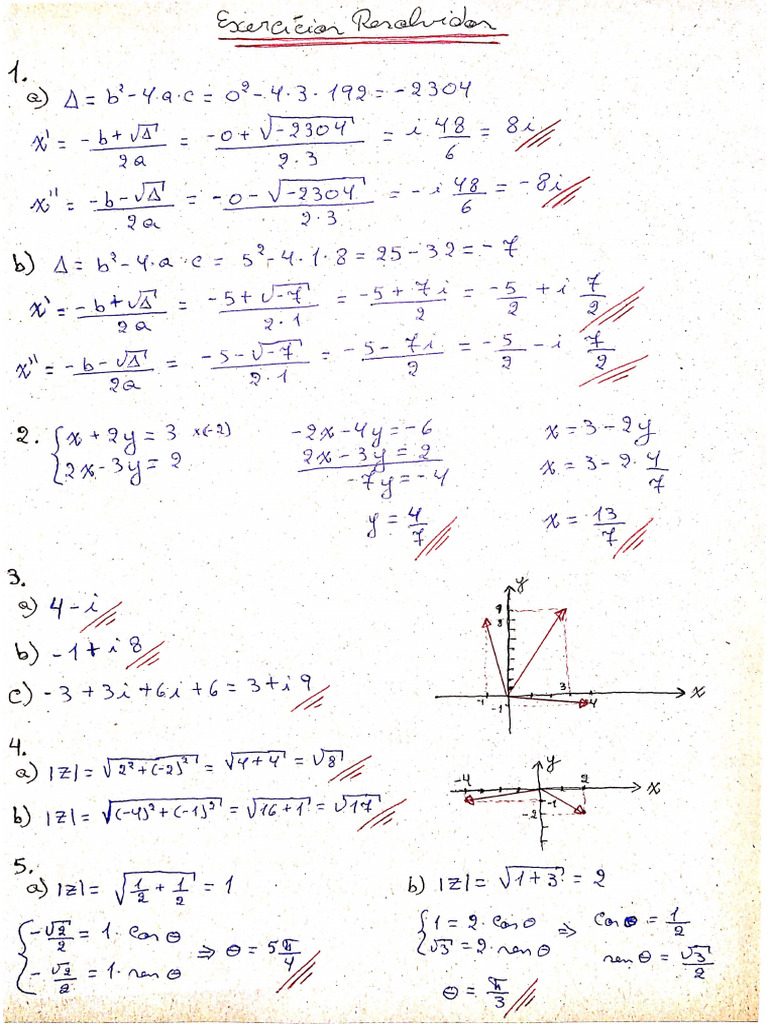 Exercícios Resolvidos
1.
a) Δ = b² - 4·a·c = 0² - 4·3·192 = -2304
x' = (-b + √Δ)/2a = (-0 + √-2304)/(2·3) = i 48/6 = 8i
x'' = (-b - √Δ)/2a = (-0 - √-2304)/(2·3) = -i 48/6 = -8i
b) Δ = b² - 4·a·c = 5² - 4·1·8 = 25 - 32 = -7
x' = (-b + √Δ)/2a = (-5 + √-7)/(2·1) = (-5 + 7i)/2 = -5/2 + i 7/2
x'' = (-b - √Δ)/2a = (-5 - √-7)/(2·1) = (-5 - 7i)/2 = -5/2 - i 7/2
2. { x + 2y = 3 x(-2)
2x - 3y = 2
-2x - 4y = -6
2x - 3y = 2
-7y = -4
y = 4/7
x = 3 - 2y
x = 3 - 2·4/7
x = 13/7
3.
a) 4 - i
b) -1 + i 8
c) -3 + 3i + 6i + 6 = 3 + i 9
y
9
8
3
x
-1
-1
4
4.
a) |z| = √(2² + (-2)²) = √(4 + 4) = √8
b) |z| = √((-4)² + (-1)²) = √(16 + 1) = √17
y
-4
2
x
-1
-2
5.
a) |z| = √(1/2 + 1/2) = 1
{ -√2/2 = 1·cos θ
-√2/2 = 1·sen θ
⇒ θ = 5π/4
b) |z| = √(1 + 3) = 2
{ 1 = 2·cos θ ⇒ cos θ = 1/2
√3 = 2·sen θ sen θ = √3/2
θ = π/3